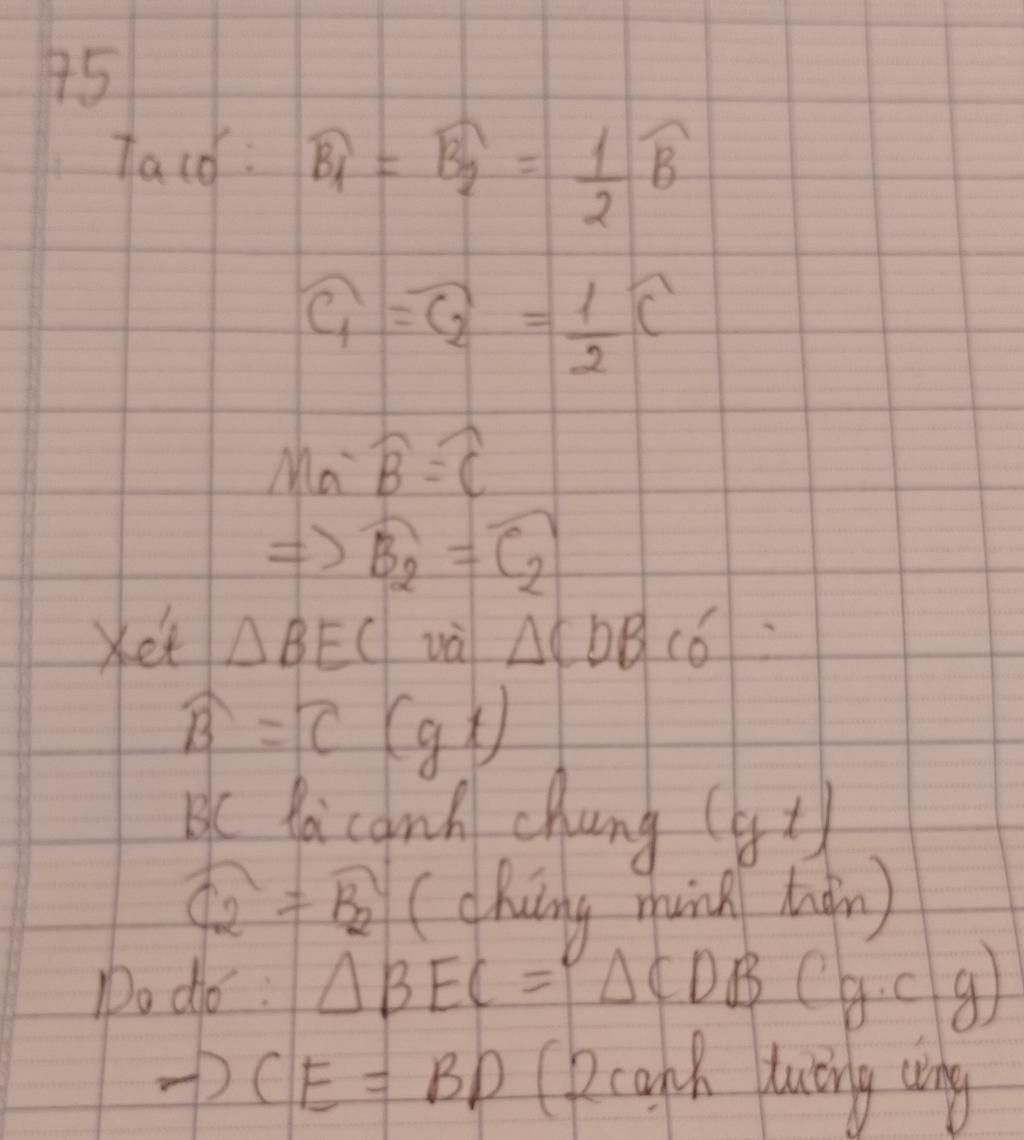 75
Ta có: B̂₁ = B̂₂ = 1/2 B̂
Ĉ₁ = Ĉ₂ = 1/2 Ĉ
Mà B̂ = Ĉ
=> B̂₂ = Ĉ₂
Xét ΔBEC và ΔCDB có :
B̂ = Ĉ (gt)
BC là cạnh chung (gt)
Ĉ₂ = B̂₂ (chứng minh trên)
Do đó: ΔBEC = ΔCDB (g.c g)
-> CE = BD (2 cạnh tương ứng